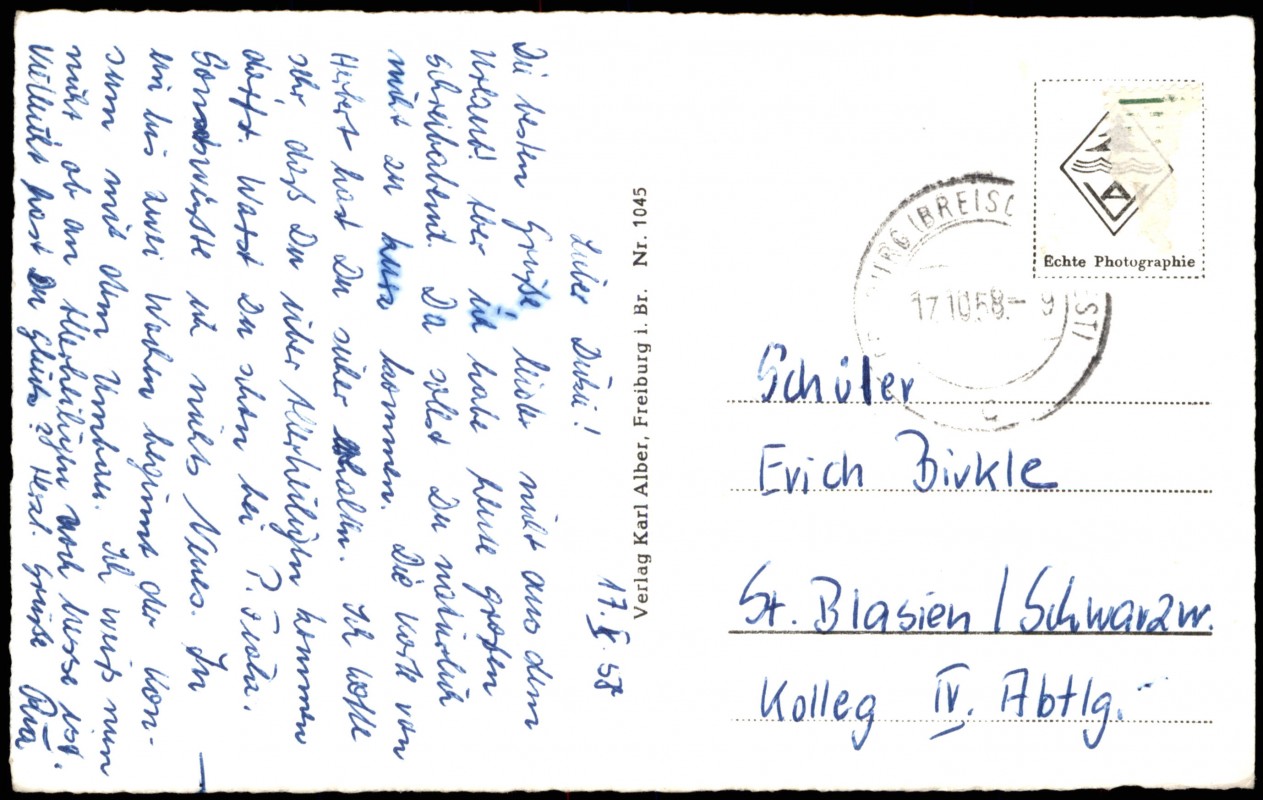 17. X. 58
Lieber Duki!
Die besten Grüße leider nicht aus dem
Urlaub! Aber ich habe heute großen
Schreibabend. Da sollst Du natürlich
nicht zu kurz kommen. Die Karte von
Herbert hast Du sicher erhalten. Ich hoffe
sehr, daß Du über Allerheiligen kommen
darfst. Warst Du schon bei P.
Sonst wüßte ich nichts Neues. In
ein bis zwei Wochen beginnt der Kon-
sum mit dem Umbau. Ich weiß nun
nicht ob an Allerheiligen noch Messe ist.
Vielleicht hast Du Glück? Herzl. Grüße
Verlag Karl Alber, Freiburg i. Br. Nr. 1045
Echte Photographie
(BREISG
17.10.58.- 9
c
Schüler
Erich Birkle
St. Blasien / Schwarzw.
Kolleg IV. Abtlg.